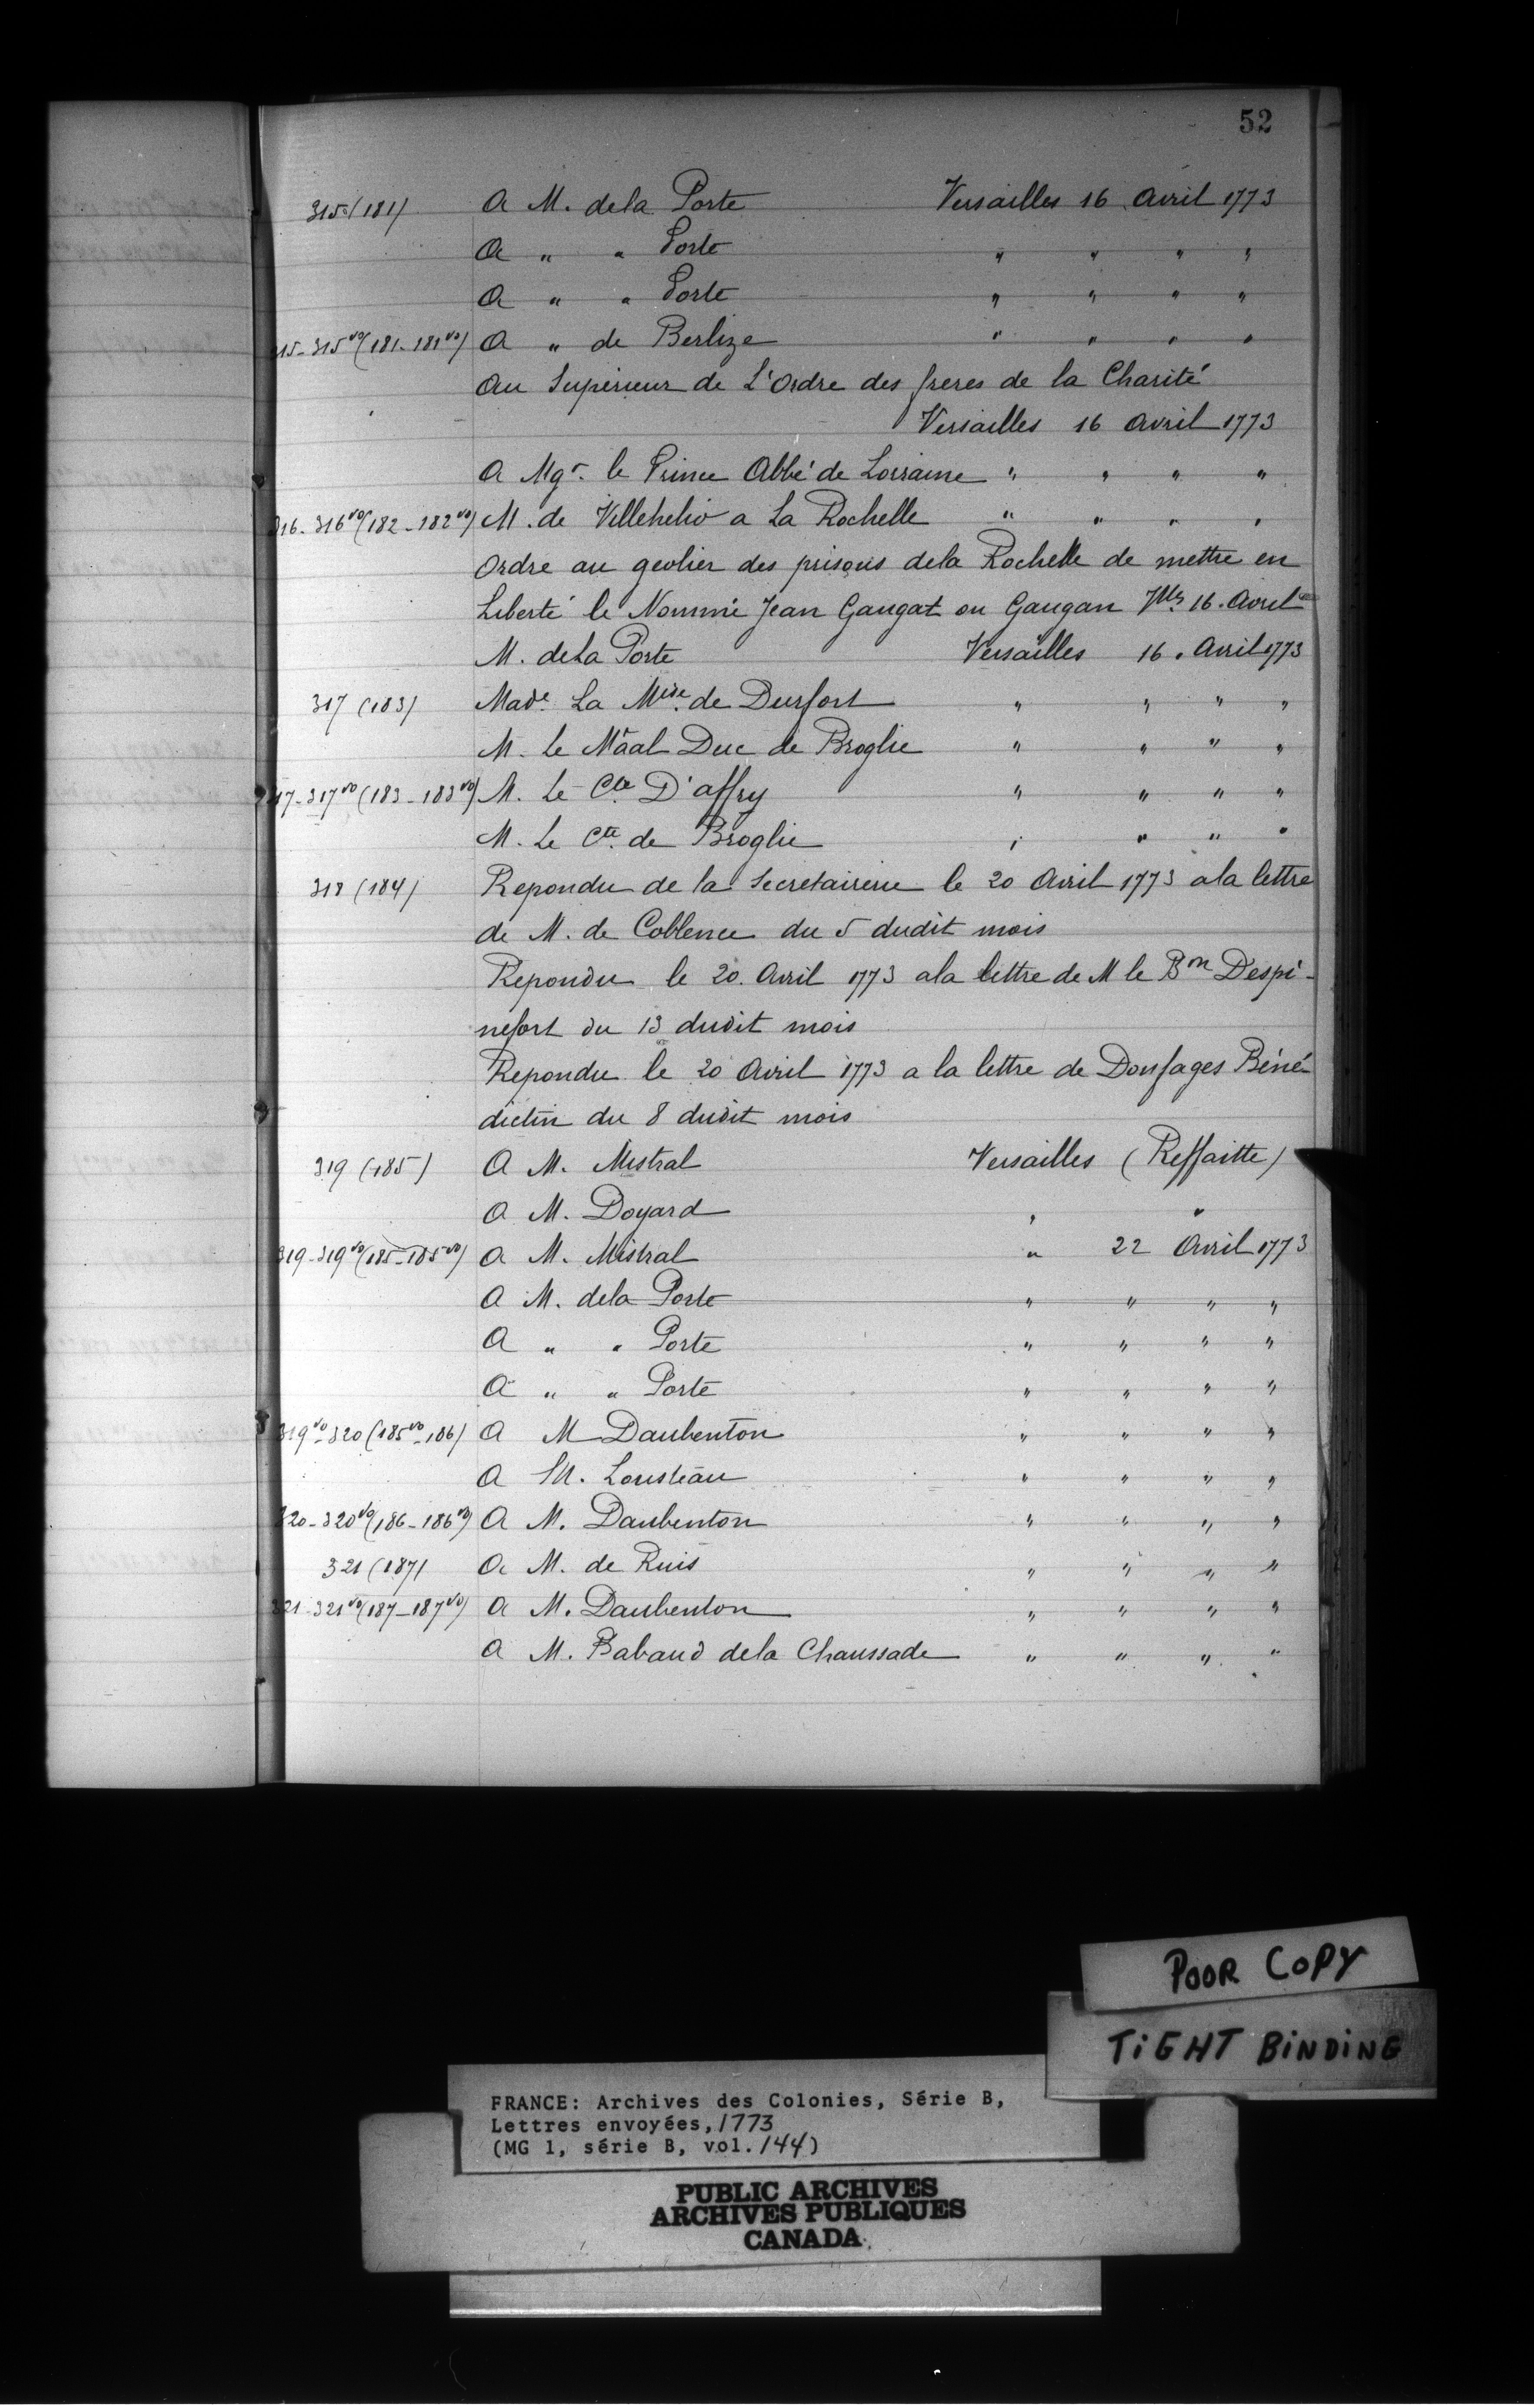 52
315 (181) A M. dela Porte Versailles 16 Avril 1773
A " " Porte " " " "
A " " Porte " " " "
315-315vo (181-181vo) A " de Berlize " " " "
Au Superieur de L'Ordre des freres de la Charité
Versailles 16 Avril 1773
A Mgr. le Prince Abbé de Lorraine " " " "
316-316vo (182-182vo) M. de Villehelio a La Rochelle " " " "
Ordre au geolier des prisons dela Rochelle de mettre en
Liberté le Nommé Jean Gaugat ou Gaugan Vlles 16. Avril
M. dela Porte Versailles 16. Avril 1773
317 (183) Made La Mise. de Durfort " " " "
M. Le Mâal Duc de Broglie " " " "
317-317vo (183-183vo) M. Le Cte D'affry " " " "
M. Le Cte. de Broglie " " " "
318 (184) Repondu de la Secretairerie le 20 Avril 1773 ala lettre
de M. de Coblence du 5 dudit mois
Repondu le 20. Avril 1773 ala lettre de M le Bon D'espi-
nefort du 13 dudit mois
Repondu le 20 Avril 1773 a la lettre de Donfages Béné-
dictin du 8 dudit mois
319 (185) A M. Mistral Versailles (Reffaitte)
A M. Doyard " "
319-319vo (185-185vo) A M. Mistral " 22 Avril 1773
A M. dela Porte " " " "
A " " Porte " " " "
A " " Porte " " " "
319vo-320 (185vo-186) A M Daubenton " " " "
A M. Lousteau " " " "
320-320vo (186-186vo) A M. Daubenton " " " "
321 (187) A M. de Ruis " " " "
321-321vo (187-187vo) A M. Daubenton " " " "
A M. Babaud dela Chaussade " " " "
POOR COPY
TIGHT BINDING
FRANCE: Archives des Colonies, Série B,
Lettres envoyées, 1773
(MG 1, série B, vol. 144)
PUBLIC ARCHIVES
ARCHIVES PUBLIQUES
CANADA